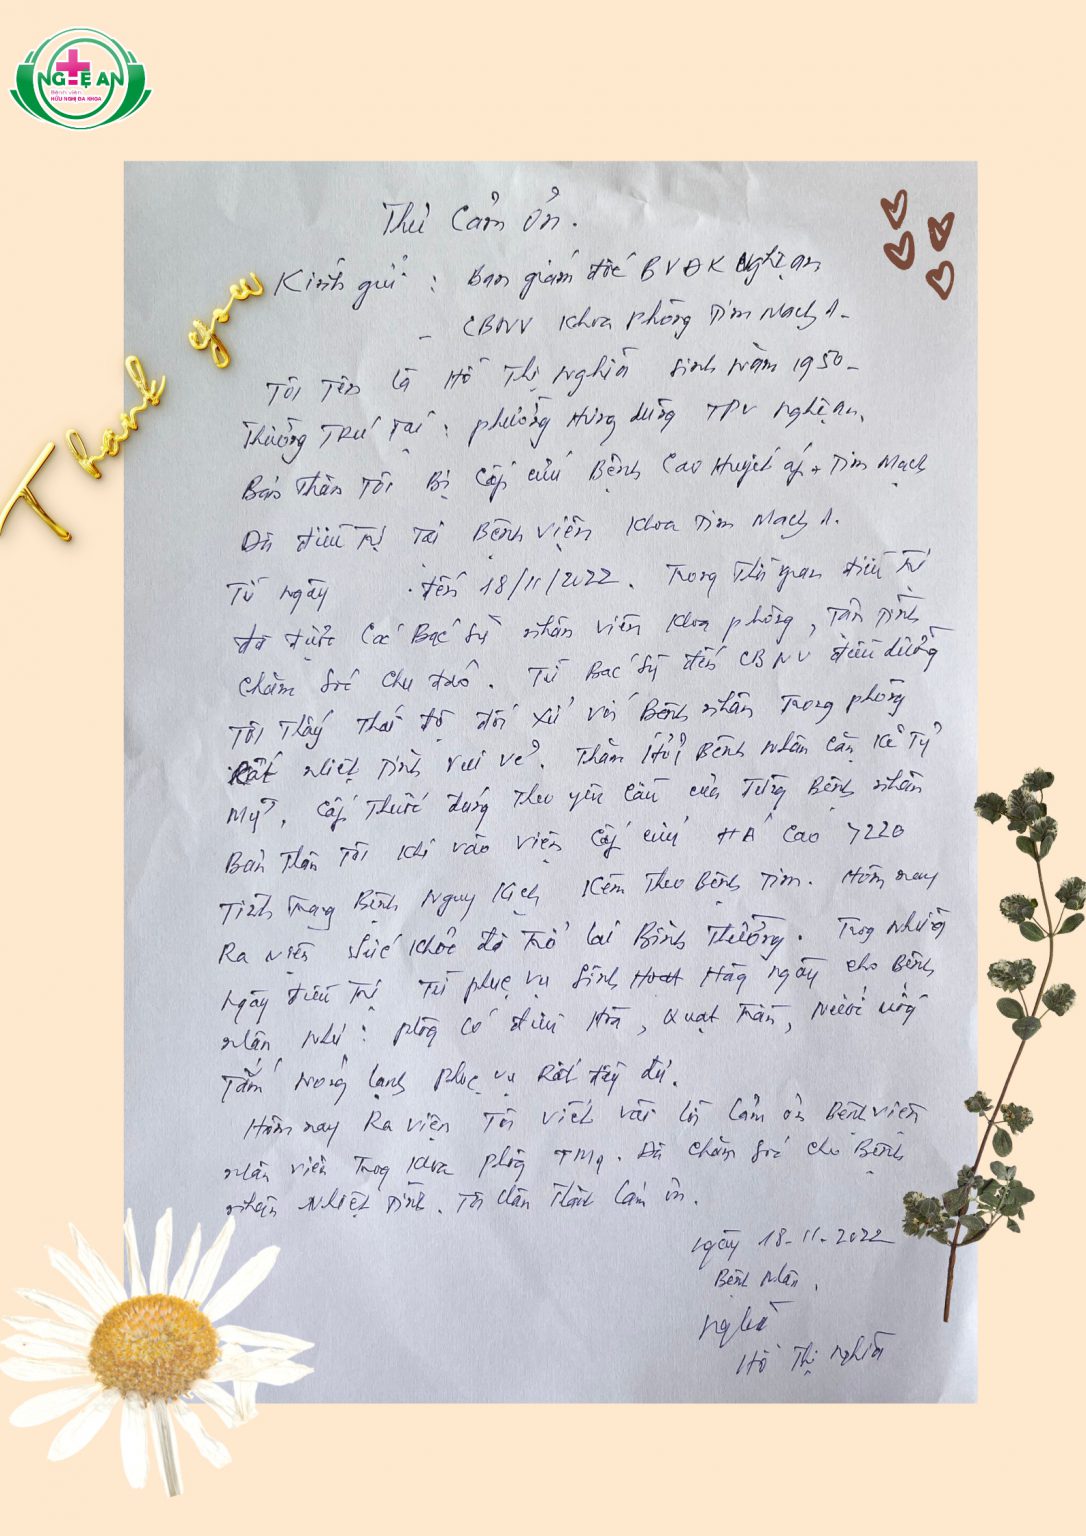 NGHỆ AN
Bệnh viện
HỮU NGHỊ ĐA KHOA
Thank you
Thư Cảm Ơn.
Kính gửi : Ban giám đốc BVĐK Nghệ an
- CBNV Khoa phòng Tim Mạch A -
Tôi Tên là Hồ Thị Nghĩa Sinh Năm 1950 -
Thường Trú Tại : phường Hưng dũng TPV Nghệ an.
Bản Thân Tôi Bị Cấp cứu Bệnh Cao Huyết áp + Tim Mạch
Đã điều Trị Tại Bệnh viện Khoa Tim Mạch A.
Từ ngày đến 18/11/2022. Trong Thời gian điều Trị
đã được Các Bác Sỹ nhân viên Khoa phòng, Tận Tình
Chăm Sóc Chu đáo. Từ Bác Sỹ đến CBNV điều dưỡng
Tôi Thấy Thái độ đối xử với Bệnh nhân Trong phòng
Rất nhiệt Tình vui vẻ. Thăm Hỏi Bệnh nhân Cặn Kẽ Tỷ
Mỷ, Cấp Thuốc đúng Theo yêu Cầu của Từng Bệnh nhân
Bản Thân Tôi Khi vào viện Cấp cứu HA Cao 7220
Tình Trạng Bệnh Nguy Kịch Kèm Theo Bệnh Tim. Hôm nay
Ra viện Sức Khỏe đã Trở lại Bình Thường. Trong Những
ngày điều Trị Từ phục vụ Sinh Hoạt Hàng ngày cho Bệnh
nhân như : phòng Có điều Hòa, Quạt Trần, Nước uống
Tắm nóng lạnh phục vụ Rất đầy đủ.
Hôm nay Ra viện Tôi viết vài lời Cảm ơn Bệnh viện
nhân viên Trong Khoa phòng TMA. Đã Chăm Sóc Cho Bệnh
nhân Nhiệt Tình. Tôi Chân Thành Cảm ơn.
Ngày 18-11-2022
Bệnh Nhân.
Nghĩa
Hồ Thị Nghĩa